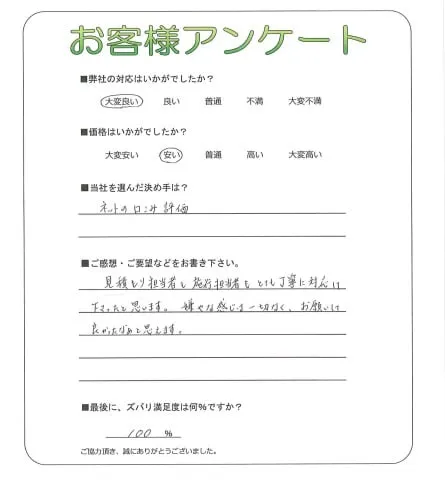 お客様アンケート
■弊社の対応はいかがでしたか？
大変良い 良い 普通 不満 大変不満
■価格はいかがでしたか？
大変安い 安い 普通 高い 大変高い
■当社を選んだ決め手は？
ネットの口コミ評価
■ご感想・ご要望などをお書き下さい。
見積もり担当者も施行担当者もとても丁寧に対応
下さったと思います。嫌な感じは一切なく、お願いして
良かったなあと思えます。
■最後に、ズバリ満足度は何%ですか？
100 %
ご協力頂き、誠にありがとうございました。